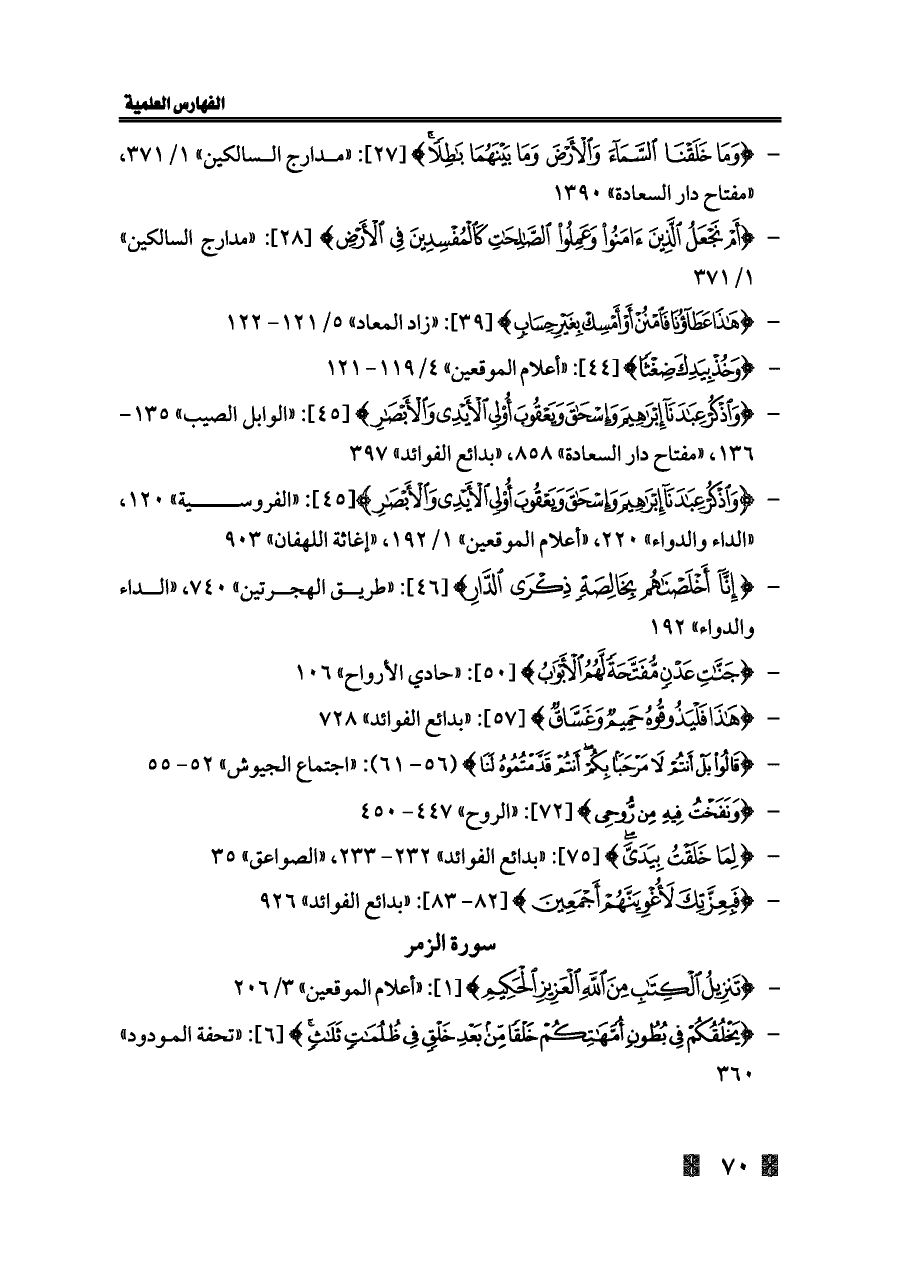 الفهارس العلمية
- ﴿وَمَا خَلَقْنَا ٱلسَّمَآءَ وَٱلْأَرْضَ وَمَا بَيْنَهُمَا بَٰطِلًاۚ﴾ [٢٧]: «مـدارج الـسالكين» ١/ ٣٧١،
«مفتاح دار السعادة» ١٣٩٠
- ﴿أَمْ نَجْعَلُ ٱلَّذِينَ ءَامَنُوا۟ وَعَمِلُوا۟ ٱلصَّٰلِحَٰتِ كَٱلْمُفْسِدِينَ فِى ٱلْأَرْضِ﴾ [٢٨]: «مدارج السالكين»
١/ ٣٧١
- ﴿هَٰذَا عَطَآؤُنَا فَٱمْنُنْ أَوْ أَمْسِكْ بِغَيْرِ حِسَابٍ﴾ [٣٩]: «زاد المعاد» ٥/ ١٢١- ١٢٢
- ﴿وَخُذْ بِيَدِكَ ضِغْثًا﴾ [٤٤]: «أعلام الموقعين» ٤/ ١١٩- ١٢١
- ﴿وَٱذْكُرْ عِبَٰدَنَآ إِبْرَٰهِيمَ وَإِسْحَٰقَ وَيَعْقُوبَ أُو۟لِى ٱلْأَيْدِى وَٱلْأَبْصَٰرِ﴾ [٤٥]: «الوابل الصيب» ١٣٥-
١٣٦، «مفتاح دار السعادة» ٨٥٨، «بدائع الفوائد» ٣٩٧
- ﴿وَٱذْكُرْ عِبَٰدَنَآ إِبْرَٰهِيمَ وَإِسْحَٰقَ وَيَعْقُوبَ أُو۟لِى ٱلْأَيْدِى وَٱلْأَبْصَٰرِ﴾[٤٥]: «الفروســــــية» ١٢٠،
«الداء والدواء» ٢٢٠، «أعلام الموقعين» ١/ ١٩٢، «إغاثة اللهفان» ٩٠٣
- ﴿إِنَّآ أَخْلَصْنَٰهُم بِخَالِصَةٍ ذِكْرَى ٱلدَّارِ﴾ [٤٦]: «طريـق الهجـرتين» ٧٤٠، «الـداء
والدواء» ١٩٢
- ﴿جَنَّٰتِ عَدْنٍ مُّفَتَّحَةً لَّهُمُ ٱلْأَبْوَٰبُ﴾ [٥٠]: «حادي الأرواح» ١٠٦
- ﴿هَٰذَا فَلْيَذُوقُوهُ حَمِيمٌ وَغَسَّاقٌ﴾ [٥٧]: «بدائع الفوائد» ٧٢٨
- ﴿قَالُوا۟ بَلْ أَنتُمْ لَا مَرْحَبًۢا بِكُمْۖ أَنتُمْ قَدَّمْتُمُوهُ لَنَا﴾ (٥٦- ٦١): «اجتماع الجيوش» ٥٢- ٥٥
- ﴿وَنَفَخْتُ فِيهِ مِن رُّوحِى﴾ [٧٢]: «الروح» ٤٤٧- ٤٥٠
- ﴿لِمَا خَلَقْتُ بِيَدَىَّۖ﴾ [٧٥]: «بدائع الفوائد» ٢٣٢- ٢٣٣، «الصواعق» ٣٥
- ﴿فَبِعِزَّتِكَ لَأُغْوِيَنَّهُمْ أَجْمَعِينَ﴾ [٨٢- ٨٣]: «بدائع الفوائد» ٩٢٦
سورة الزمر
- ﴿تَنزِيلُ ٱلْكِتَٰبِ مِنَ ٱللَّهِ ٱلْعَزِيزِ ٱلْحَكِيمِ﴾ [١]: «أعلام الموقعين» ٣/ ٢٠٦
- ﴿يَخْلُقُكُمْ فِى بُطُونِ أُمَّهَٰتِكُمْ خَلْقًا مِّنۢ بَعْدِ خَلْقٍ فِى ظُلُمَٰتٍ ثَلَٰثٍۚ﴾ [٦]: «تحفة المودود»
٣٦٠
٧٠